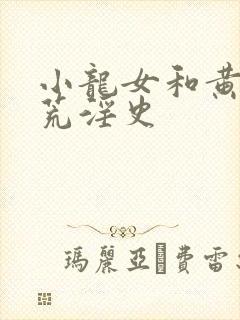 小龍女和黃
荒淫史
瑪麗亞・費雷